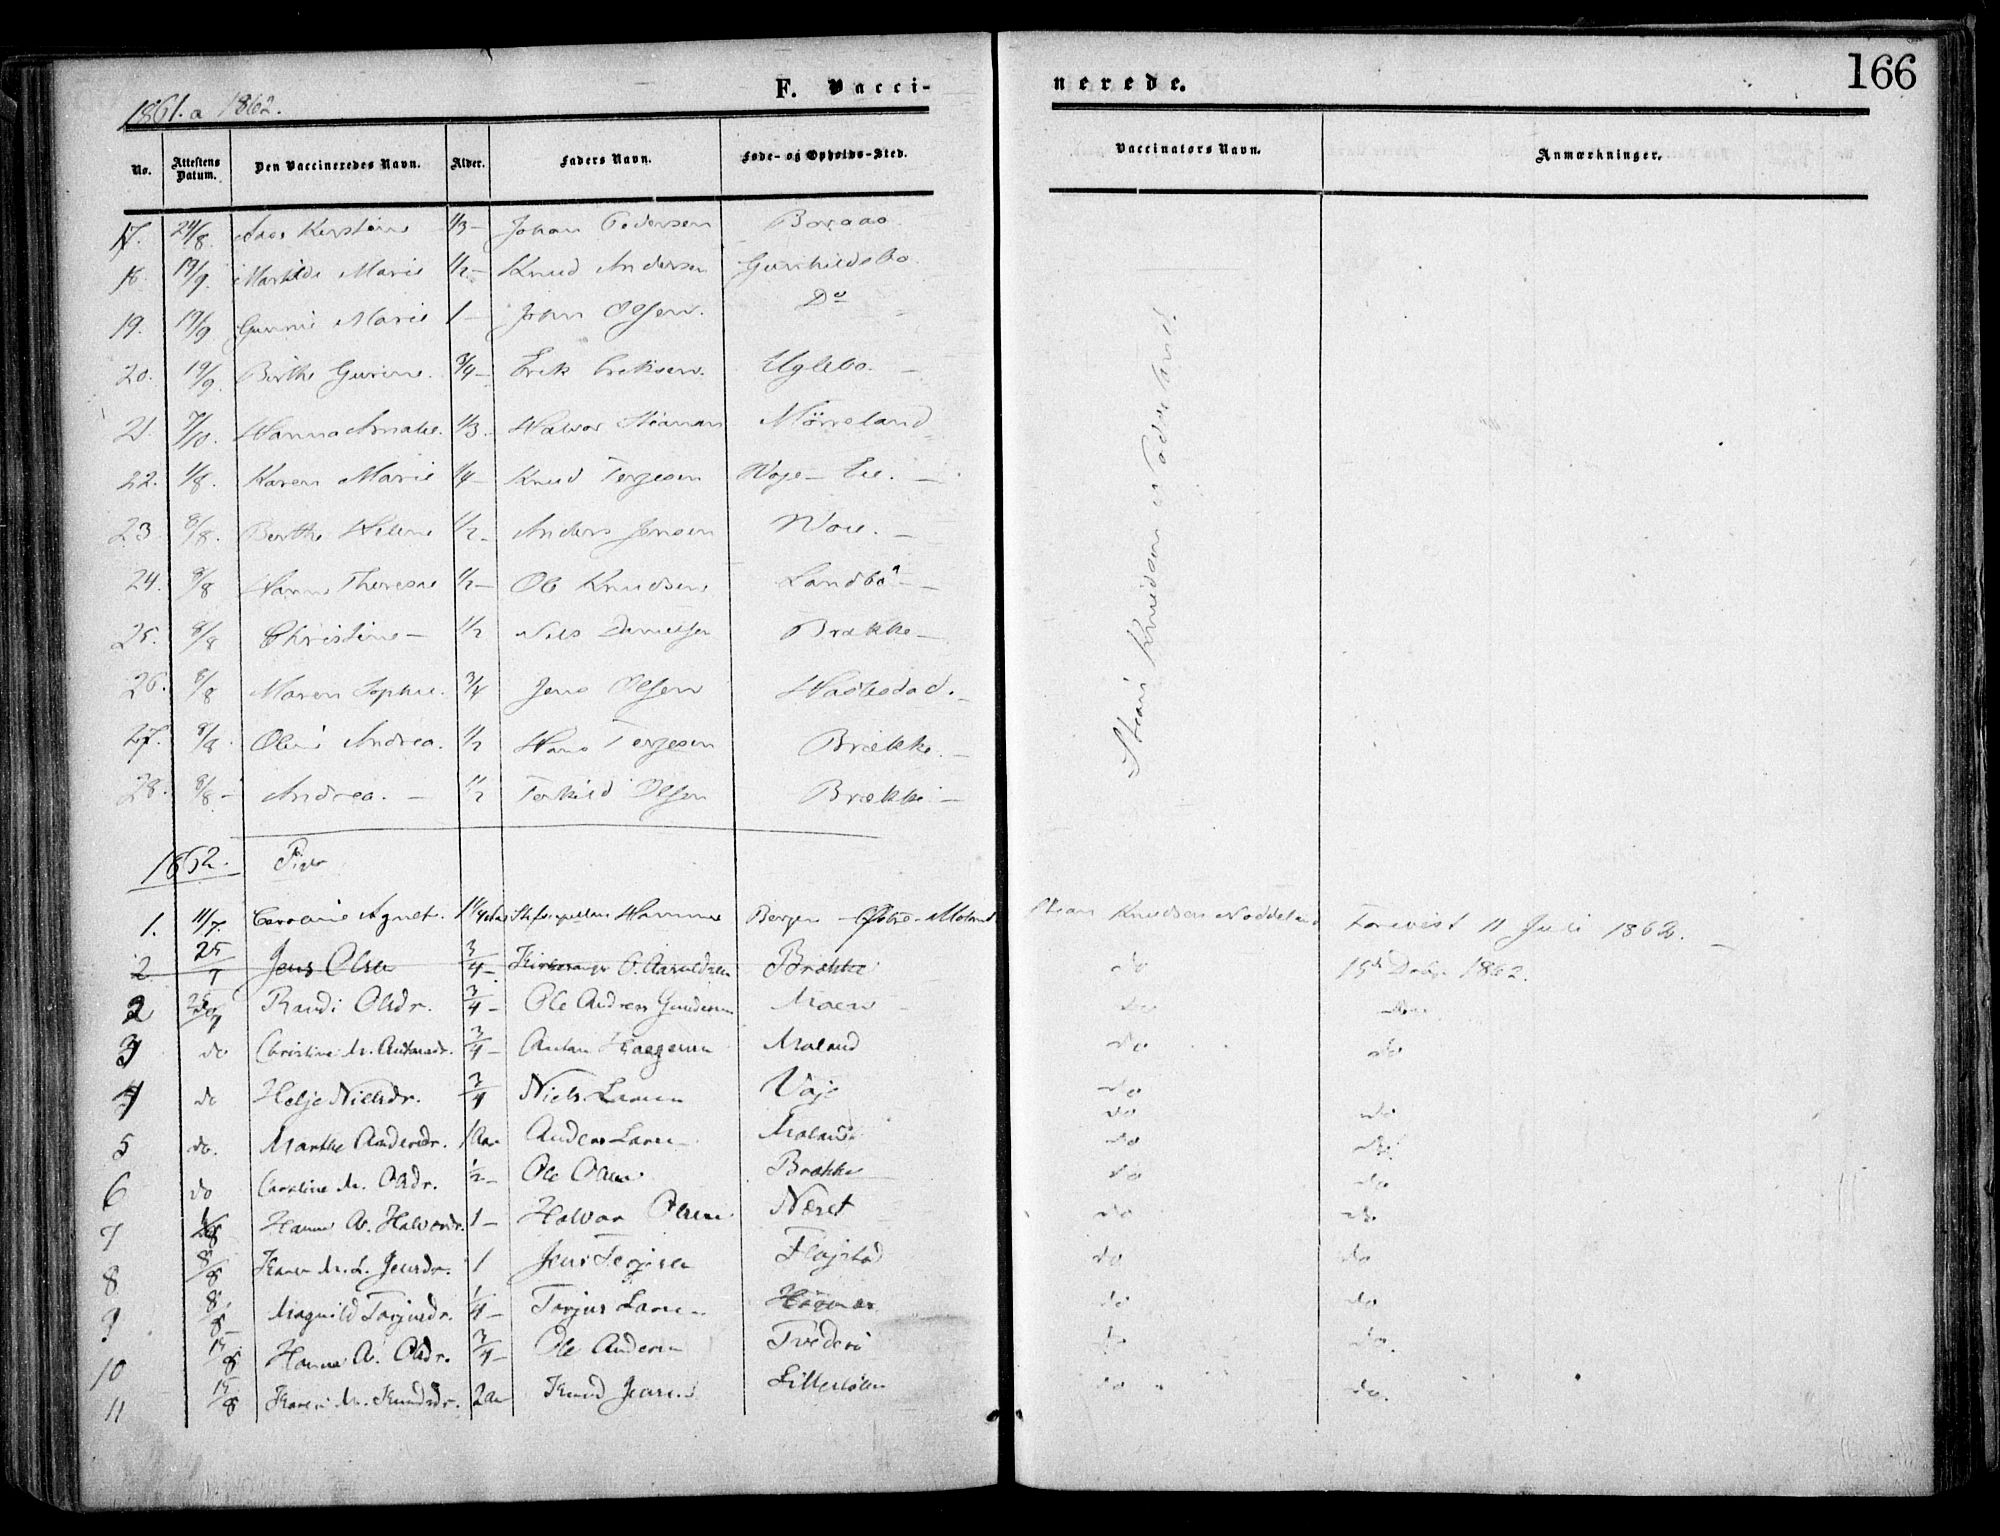 166
F. Vacci-
nerede.
1861. a 1862.
No. Attestens Datum. Den Vaccineredes Navn. Alder. Faders Navn. Føde- og Opholds-Sted. Vaccinators Navn. Anmærkninger.
17. 24/8. Kirstine 1/3 - Johan Pedersen
18. 19/9. Marie 1/2 - Knud Andersen Gunhildsbo
19. 19/9 Gunnie Marie 1 - John Olsen. Do
20. 19/9. Birthe Gurine. 3/4 - Erik Eriksen. Uglebo. -
21. 7/10. Hanna Amalie. 1/3. Halvor Mörreland
22. 1/8. Karen Marie 1/4 - Knud Terjesen Woje - Eie. -
23. 8/8. Berthe Helene 1/2 - Anders Jensen Woie. -
24. 8/8 Hanne Therese 1/2 - Ole Knudsen Landbö -
25. 8/8 Christine - 1/2 Nils Danielsen Brække -
26. 8/8 Maren Sophie. 3/4 Jens Olsen -
27. 8/8. Oline Andrea. 1/2 Hans Terjesen Brække. -
28. 8/8. - Andrea. - 1/2 Terkild Olsen Brække -
Knudsen Noddeland
1862. Piger
1. 11/7. Caroline Agnete. Hammer Bergen - Østre-Moland Knudsen Noddeland Forevist 11 Juli 1862. -
2 25/7 Jens Olsen 3/4 - Kirkesanger O. Aanuldsen Brække do 15de Debr. 1862.
2 25/7 Randi Olsdr. 3/4 - Ole Andreas Gundersen Moen do do
3 do Christine M. Antonsdr. 3/4 - Anton Moland do do
4 do Helje Nielsdr. 3/4 Niels Larsen Voje do
do do
5 do. Marthe Andersdr. 1 Aar Anders Larsen Moland do do
6 do Caroline M. Olsdr. 1/2 - Ole Olsen Brække do do
7 Hanne A. Halvorsdr. 1 - Halvor Olsen Neset do do
8 8/8 Karen M. L. Jensdr. 1 Jens Terjesen Flajstad do do
9 8/8 Magnild Tarjusdr. 1/4 - Tarjus Larsen do do
10 15/8 Hanne A. Olsdr. 3/4 - Ole Andersen Tvederö do do.
11 15/8 Karen M. Knudsdr. 2 Aar Knud Jensen do do.